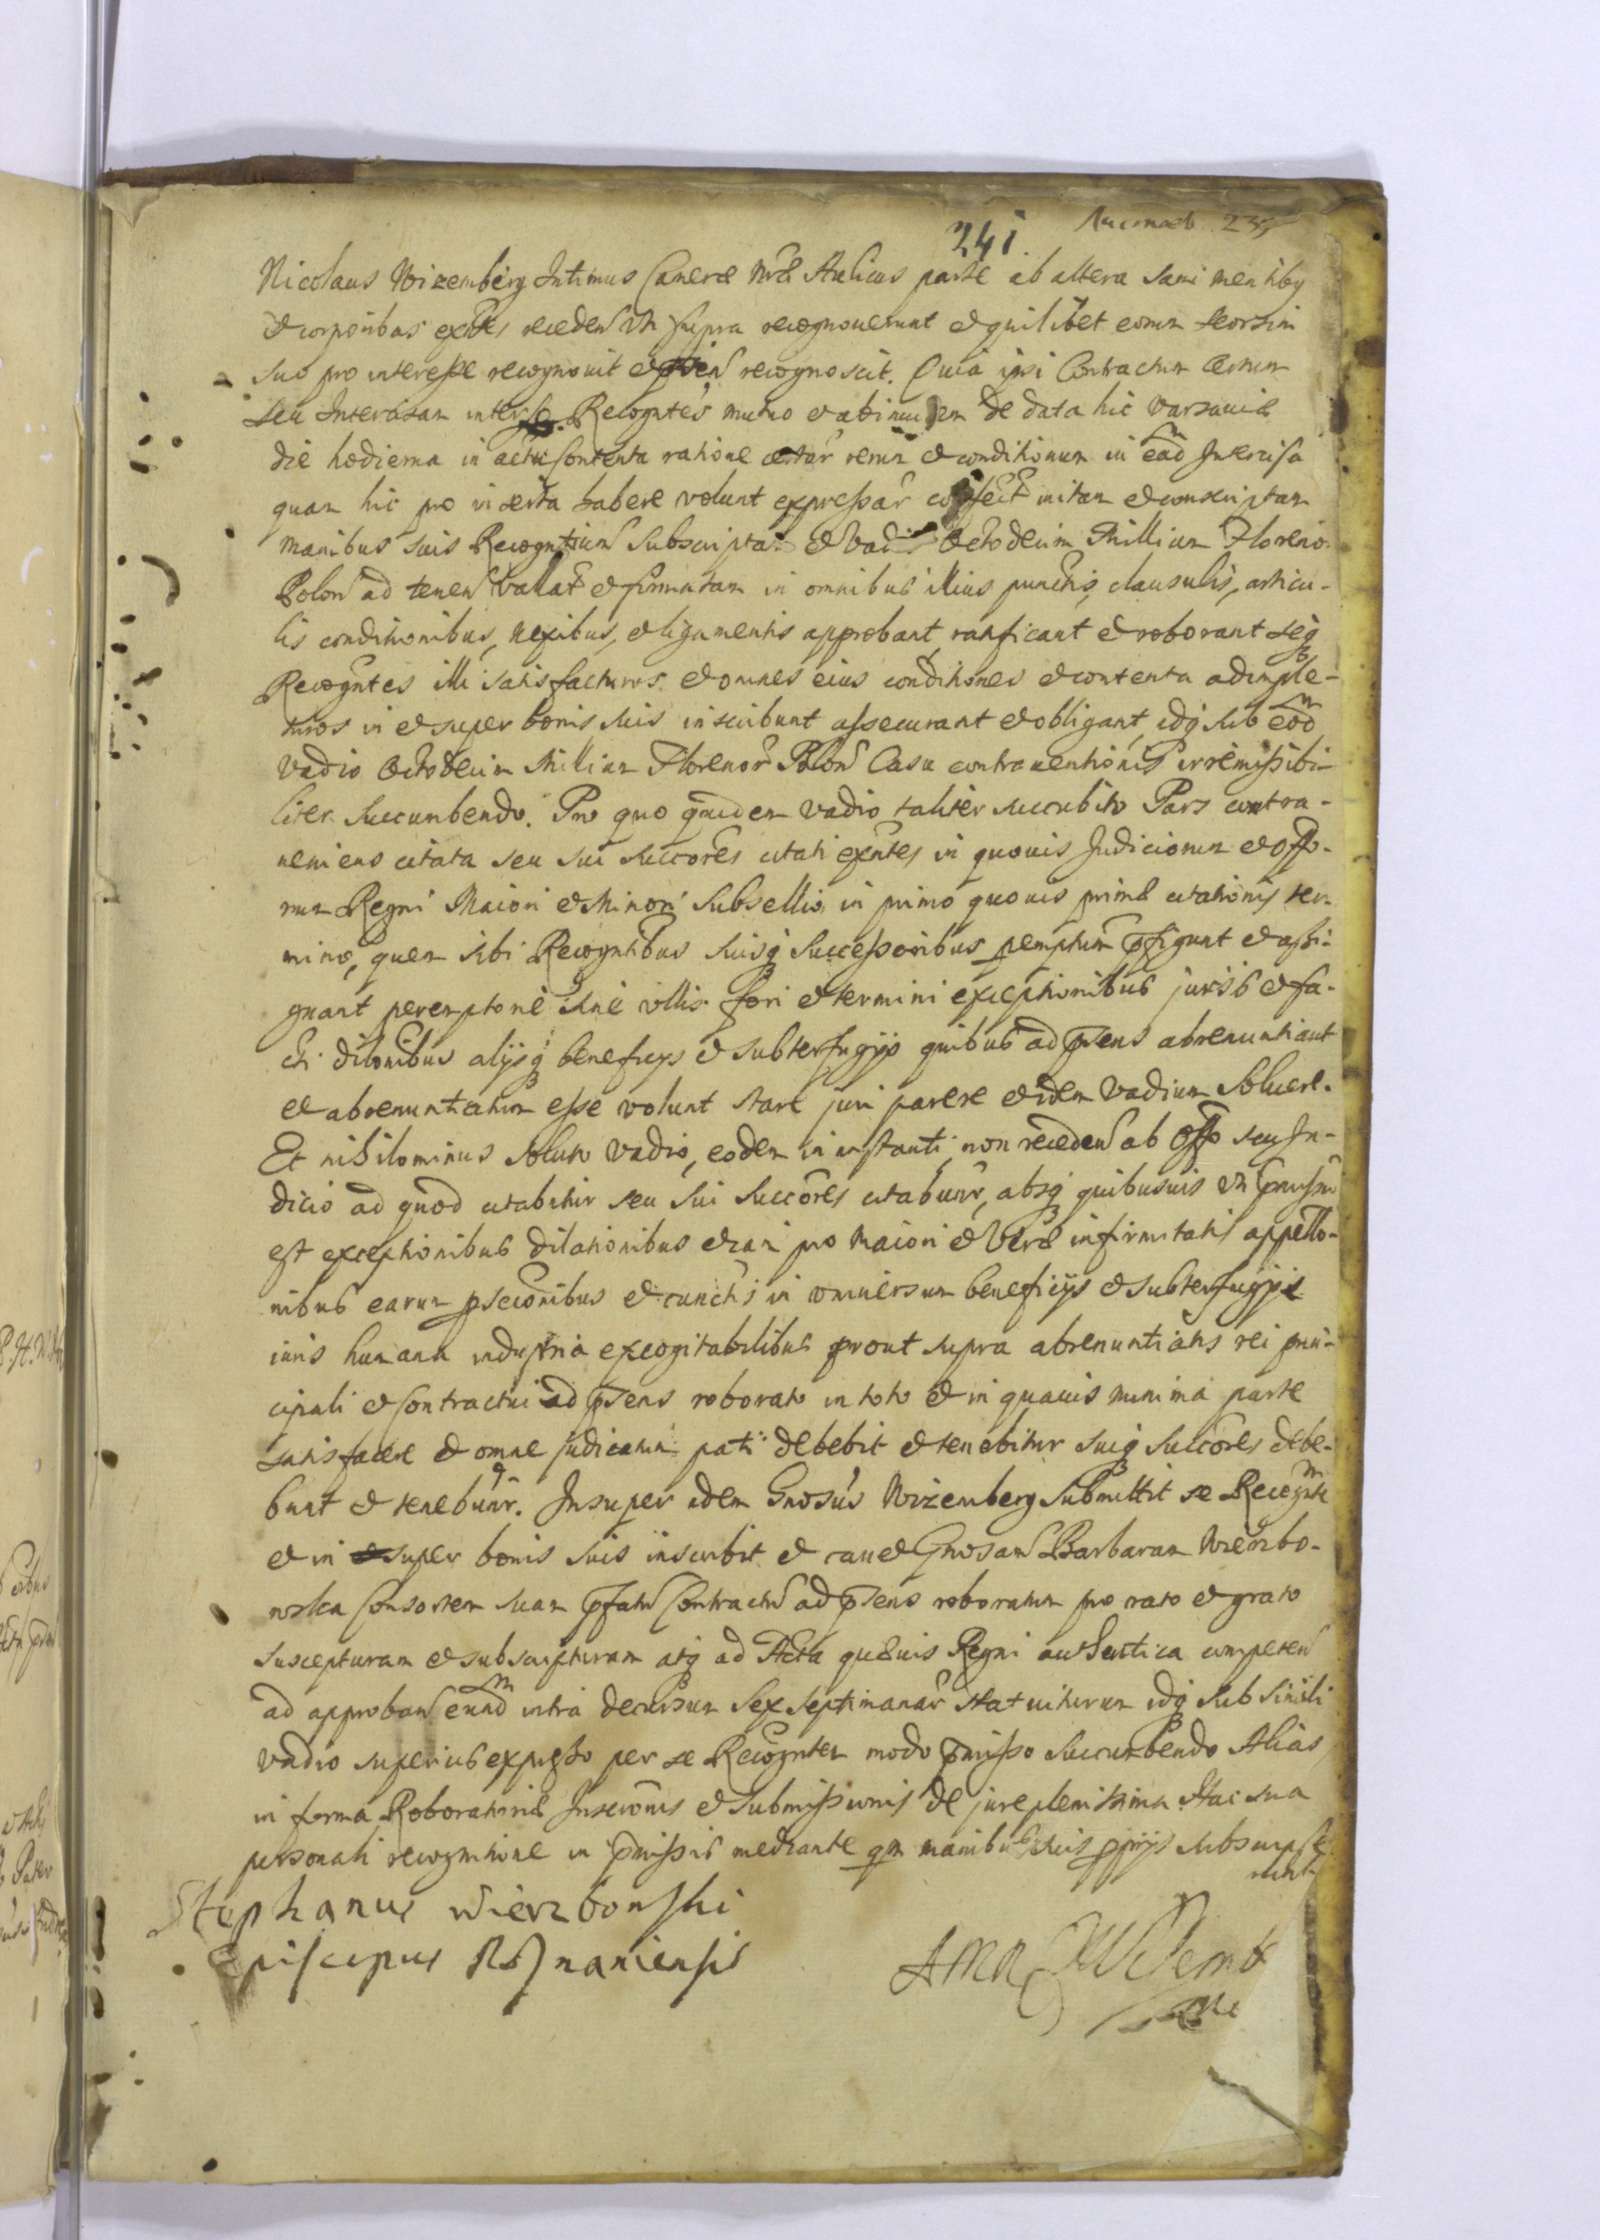 241
Листовъ 239
Nicolaus Wizemberg Intimus Cameræ Nræ Aulicus parte ab altera sani mentibq
et corporibus exntes receden vt supra recognouerunt et quilibet eorum seorsim
suo pro interesse recognouit et recognoscit. Quia ipsi Contractum certum
seu Intercisam inter se Recogntes mutuo et ad inuicem de data hic Varsauiæ
die hodierna in actu contenta ratione certar rerum et conditionum in ead Intercisa
quam hic pro inserta habere volunt expressar confect initam et conscriptam
manibus suis Recogntium subscriptam et Vadio Octodecim Millium Floreno
Polon ad tenen vallat et firmatam in omnibus illius punctis, clausulis, articu-
lis conditionibus, nexibus, et ligamentis approbant, ratificant et roborant seq
Recogntes illi satisfacturos et omnes eius conditiones et contenta adimple-
turos in et super bonis suis inscribunt assecurant et obligant, idq sub eod
vadio Octodecim Millium Florenor Polon Casu contrauentionis irremissibi-
liter succumbendo. Pro quo quidem vadio taliter succubito Pars contra-
ueniens citata seu sui succores citati exntes in quouis Judiciorum et Offo-
rum Regni Maiori et Minori Subsellio, in primo quouis primæ citationis ter-
mino, quem sibi Recogntibus suisq Successoribus pemptum pfigunt et assi-
gnant peremptorie sine vllis fori et termini exceptionibus juris et fa-
cti dilonibus alijsq beneficijs et subterfugijs quibus ad psens abrenuntiant
et abrenuntiatum esse volunt stare juri parere et idem vadium soluere.
Et nihilominus soluto vadio, eodem in instanti, non receden ab Offo seu Ju-
dicio ad quod citabitur seu sui succores citabunr, absq quibusuis vt pmissum
est exceptionibus dilationibus etiam pro Maiori et Veræ infirmitatis appello-
nibus earum psecionibus et cunctis in vniuersum beneficijs et subterfugijs
iuris humana industria excogitabilibus prout supra abrenuntiatis rei prin-
cipali et Contractui ad psens roborato in toto et in quauis minima parte
satisfacere et omne judicatum pati debebit et tenebitur suiq succores debe-
bunt et tenebunr. Insuper idem Gnosus Wizemberg submittit se Recognte
et in super bonis suis inscribit et cauet Gnosam Barbaram Wierzbo-
wska Consortem suam pfatu Contractu ad psens roboratum pro rato et grato
suscepturam et subscripturam atq ad Acta quæuis Regni authentica competen
ad approban eund intra decursum sex septimanar statuiturum idq sub simili
vadio superius expresso per se Recogntem modo pmisso succumbendo Alias
in forma Roborationis Inscronis et submissionis de jure plenissima Hac sua
personali recognitione in pmissis mediante qm manibus suis pprijs subscripse-
runt
Stephanus Wierzbowski
Episcopus Posnaniensis